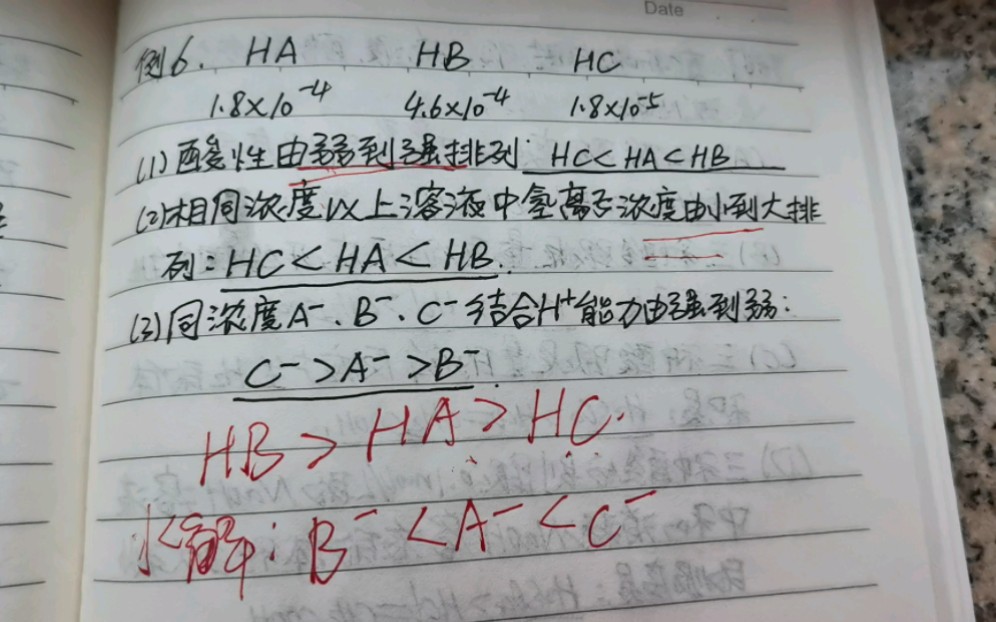 Date
例6. HA HB HC
1.8×10⁻⁴ 4.6×10⁻⁴ 1.8×10⁻⁵
(1)酸性由弱到强排列: HC<HA<HB
(2)相同浓度以上溶液中氢离子浓度由小到大排
列:HC<HA<HB.
(3)同浓度A⁻、B⁻、C⁻结合H⁺能力由强到弱:
C⁻>A⁻>B⁻.
HB>HA>HC.
水解:B⁻<A⁻<C⁻